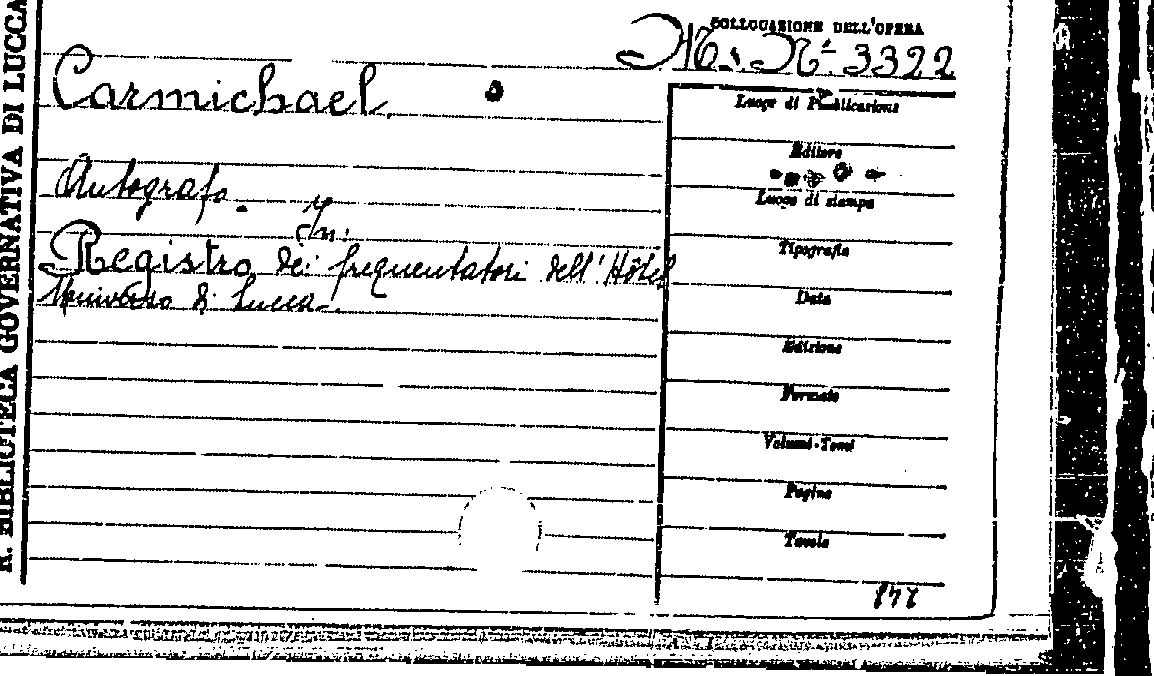 R. BIBLIOTECA GOVERNATIVA DI LUCCA
COLLOCAZIONE DELL'OPERA
Ms. Nº 3322
Carmichael.
Autografo. In:
Registro dei frequentatori dell'Hôtel
Universo di Lucca.
Luogo di Pubblicazione
Editore
Luogo di stampa
Tipografia
Data
Edizione
Formato
Volumi-Tomi
Pagine
Tavole